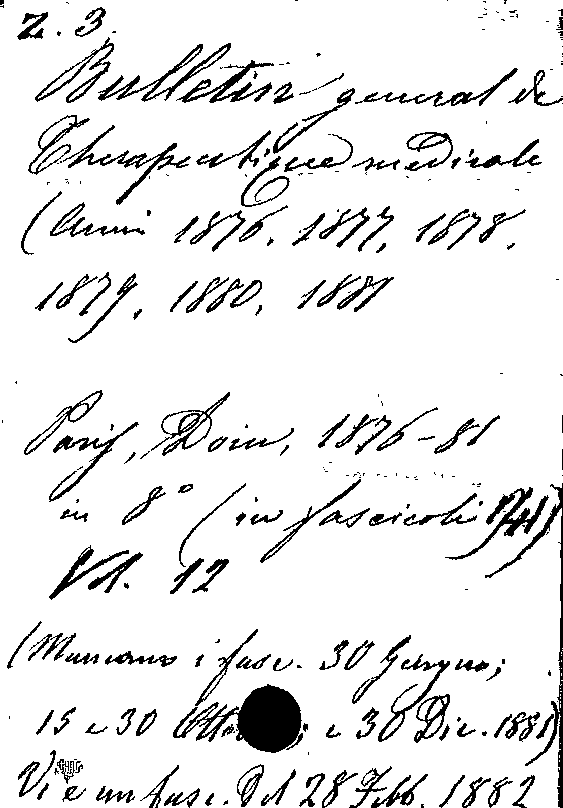 Z. 3.
Bulletin general de
Therapeutique medicale
(Anni 1876, 1877, 1878,
1879, 1880, 1881
Paris, Doin, 1876-81
in 8° (in fascicoli 141)
Vol. 12
(Mancano i fasc. 30 Giugno;
15 e 30 e 30 Dic. 1881)
Vi è un fasc. del 28 Febb. 1882